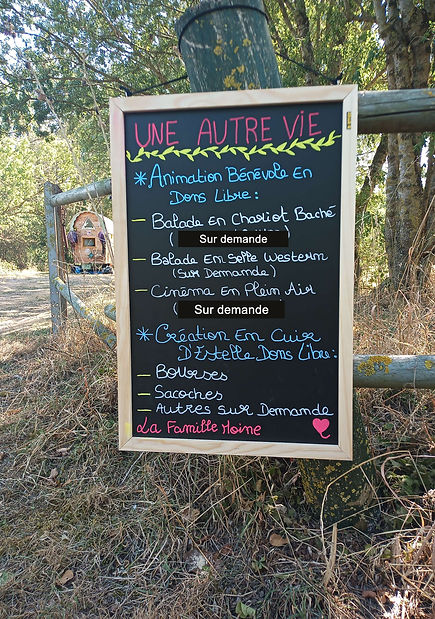 UNE AUTRE VIE
* Animation Bénévole En
Dons Libre :
- Balade en Chariot Bâché
(
Sur demande
- Balade En Selle Western
(Sur Demande)
- Cinéma En Plein Air
(
Sur demande
* Création En Cuir
D'Estelle Dons Libre :
- Bourses
- Sacoches
- Autres Sur Demande
La Famille Moine